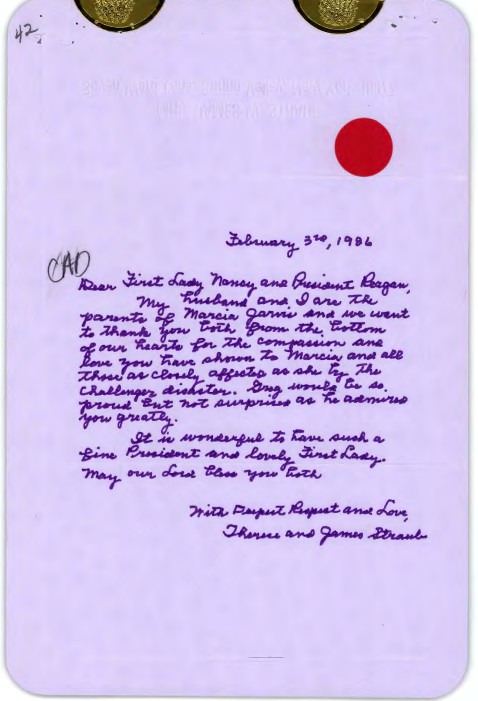 42
February 3rd, 1986
CAD
Dear First Lady Nancy and President Reagan,
My husband and I are the
parents of Marcia Jarvis and we want
to thank you both from the bottom
of our hearts for the compassion and
love you have shown to Marcia and all
those as closely affected as she by the
Challenger disaster. Greg would be so
proud but not surprised as he admired
you greatly.
It is wonderful to have such a
fine President and lovely First Lady.
May our Lord bless you both
With Deepest Respect and Love,
Therese and James Straub